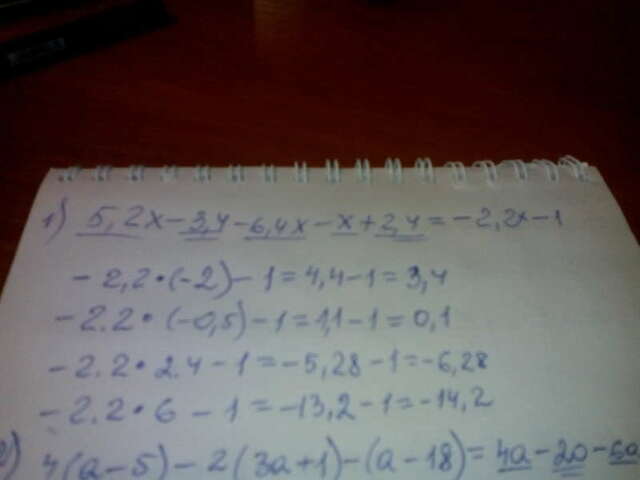 1) 5,2x-3,4-6,4x-x+2,4=-2,2x-1
-2,2•(-2)-1=4,4-1=3,4
-2.2•(-0,5)-1=1,1-1=0,1
-2.2•2.4-1=-5,28-1=-6,28
-2.2•6-1=-13,2-1=-14,2
2) 4(a-5)-2(3a+1)-(a-18)=4a-20-6a